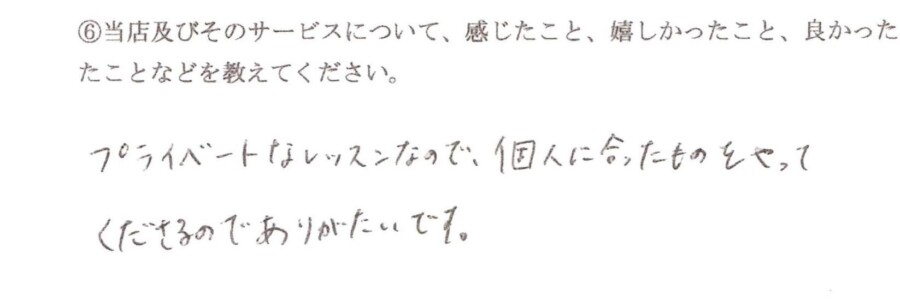 ⑥当店及びそのサービスについて、感じたこと、嬉しかったこと、良かった
たことなどを教えてください。
プライベートなレッスンなので、個人に合ったものをやって
くださるのでありがたいです。